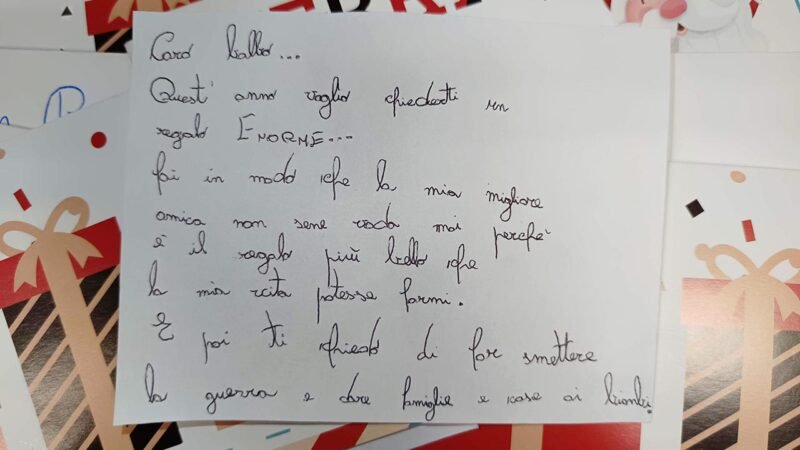 Caro babbo...
Quest'anno voglio chiederti un
regalo ENORME...
fai in modo che la mia migliore
amica non sene vada mai perchè
è il regalo più bello che
la mia vita potesse farmi.
E poi ti chiedo di far smettere
la guerra e dare famiglie e case ai bimbi.